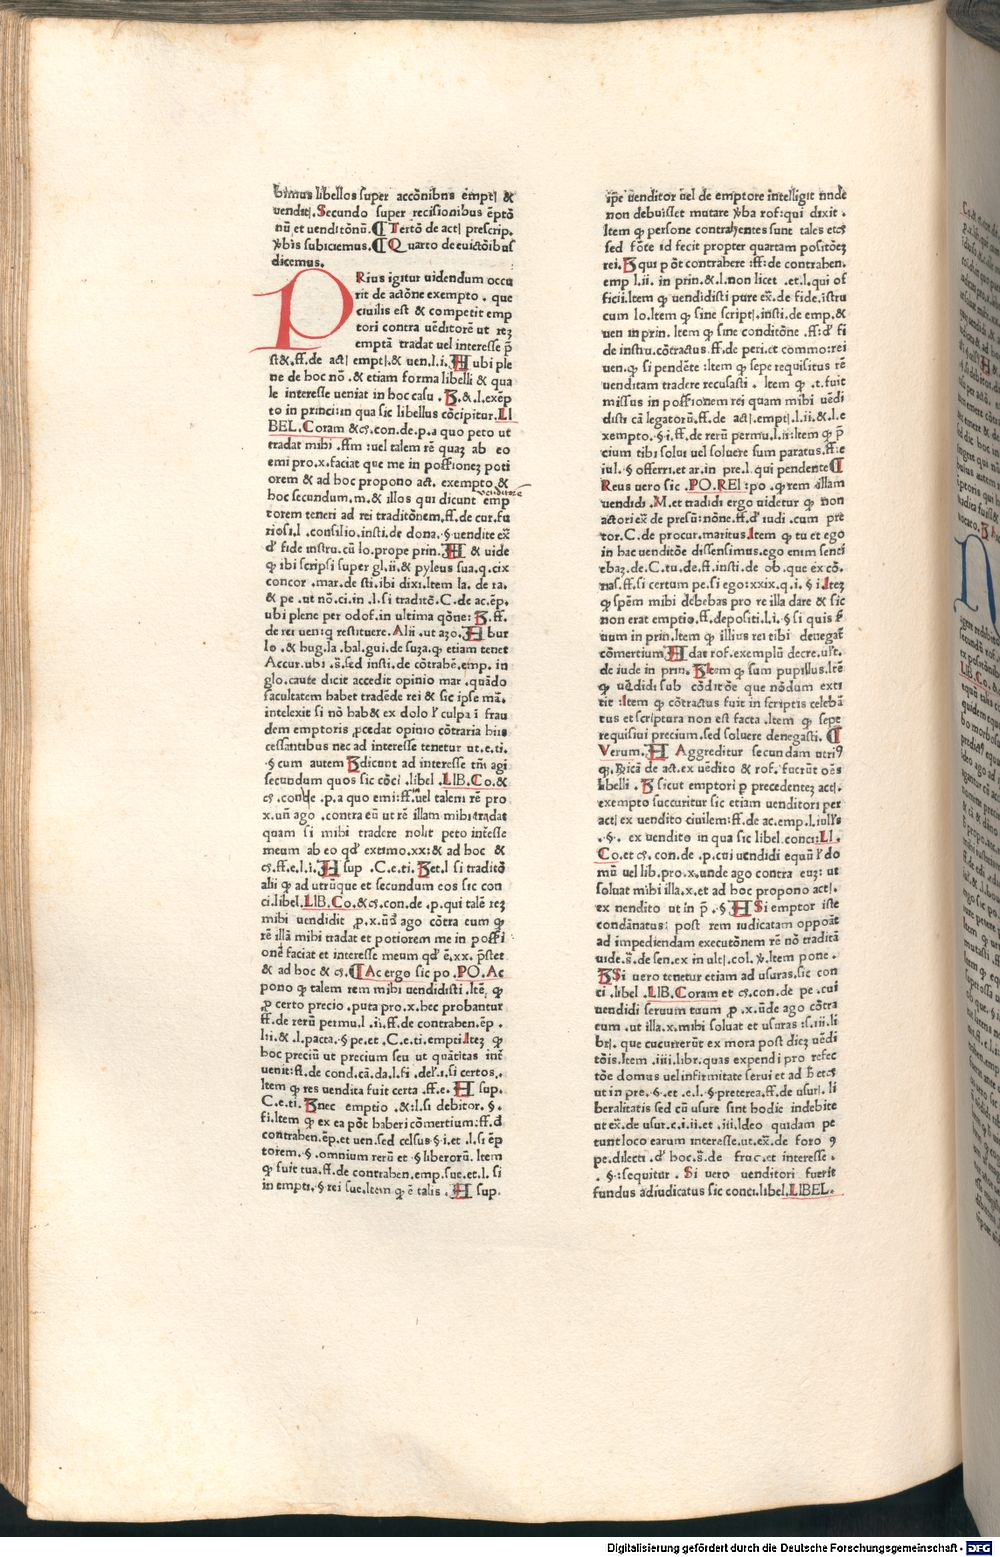 bimus libellos super accõnibus empti &
venditi. Secundo super recisionibus ẽptõ
nũ et venditõnũ. ¶ Tertõ de acti prescrip.
ꝟbis subiciemus. ¶ Quarto de euictõibus
dicemus.
PRius igitur uidendum occu
rit de actõne exempto . que
ciuilis est & competit emp
tori contra uẽditorẽ ut reꝫ
emptã tradat uel interesse p̃
st& .ff.de acti empti.& uen.l.i. H ubi ple
ne de hoc nõ . & etiam forma libelli & qua
le interesse ueniat in hoc casu . B.& .l.exẽp
to in principi:in qua sic libellus cõcipitur. LI
BEL. Coram &cꝫ.con.de.p.a quo peto ut
tradat mihi .ffm :uel talem rẽ quaꝫ ab eo
emi pro.x.faciat que me in possioneꝫ poti
orem & ad hoc propono act. exempto &
hoc secundum.m.& illos qui dicunt emp
venditorẽ
torem teneri ad rei traditõnem.ff.de cur.fu
riosi.l .consilio.insti.de dona. § uendite ex̃
d' fide instru.cũ lo.prope prin. H & uide
ꝙ ibi scripsi super gl.ii.& pyleus sua.q.cix
concor .mar.de sti.ibi dixi.Item la. de ra.
& pe .ut nõ.ci.in .l.si traditõ.C.de ac.ẽp.
ubi plene per odof.in ultima qõne: B.ff.
de rei uen:q restituere. Alii .ut azo. H bur
lo .& bug.la .bal.gui.de suza.ꝙ etiam tenet
Accur.ubi .s̃.sed insti.de cõtrahẽ.emp. in
glo.caute dicit accedit opinio mar .quãdo
facultatem habet tradẽde rei & sic ipse mã.
intelexit si nõ hab& ex dolo l' culpa i frau
dem emptoris ꝓcedat opinio cõtraria hiis
cessantibus nec ad interesse tenetur ut.e.ti.
§ cum autem B dicunt ad interesse tm̃ agi
secundum quos sic cõci .libel .LIB. Co.&
cꝫ .conde .p.a quo emi:ff. uel talem rẽ pro
x.uñ ago .contra eũ ut rẽ illam mihi tradat
quam si mihi tradere nolit peto intẽsse
meum ab eo qd' extimo.xx:& ad hoc &
cꝫ.ff.e.l.i. H sup .C.e.ti. B et.l si traditõ
alii ꝙ ad utrũque et secundum eos sic con
ci.libel. LIB. Co.&cꝫ.con.de .p.qui talẽ reꝫ
mihi uendidit .ꝓ.x.ũd' ago cõtra eum ꝙ
rẽ illã mihi tradat et potiorem me in possi
onẽ faciat et interesse meum qd' ẽ.xx. p̃stet
& ad hoc & cꝫ. ¶ Ac ergo sic po. PO. Ac
pono ꝙ talem rem mihi uendidisti .Itẽ, ꝙ
ꝓ certo precio .puta pro.x.hec probantur
ff.de rerũ permu.l .ii.ff.de contraben.ẽp .
l.ii.& .l.pacta. § pe.et .C.e.ti.empti. Iteꝫ ꝙ
hoc preciũ ut precium seu ut quãtitas int̃
uenit:ff.de cond.cã.da.l.fi .del'.i.si certos.
Item ꝙ res uendita fuit certa .ff.e. H sup.
C.e.ti. B nec emptio .&:l.si debitor. §.
fi.Item ꝙ ex ea põt haberi cõmertium:ff.d'
contraben.ẽp.et uen.sed celsus § i.et .l.si ẽp
torem. § .omnium rerũ et § liberorũ. Item
ꝙ fuit tua.ff.de contraben.emp.sue.et.l. si
in empti. § rei sue.Item ꝙ ẽ talis . H sup.
ip̃e uenditor uel de emptore intelligit unde
non debuisset mutare ꝟba rof:qui dixit .
Item ꝙ persone contrahentes sunt tales etcꝫ
sed fõte id fecit propter quartam positõeꝫ
rei. B qui põt contrahere :ff: de contraben.
emp l.ii. in prin.& .l.non licet .et.l.qui of
ficii.Item ꝙ uendidisti pure ex̃.de fide.istru
cum lo.Item ꝙ sine scripti.insti.de emp.&
uen in prin. Item ꝙ sine conditõne .ff: d' fi
de instru.cõtractus.ff.de peri.et commo:rei
uen.ꝙ si pendẽte :Item ꝙ sepe requisitus rẽ
uenditam tradere recusasti . Item ꝙ .t.fuit
missus in possionem rei quam mihi uẽdi
disti cã legatorũ.ff.de acti.empti.l.ii.&.l.e
xempto. §i.ff.de rerũ permu.l.ii:Item ꝙ p̃
cium tibi solui uel soluere sum paratus.ff:e
iul. § offerri.et ar.in pre.l.qui pendente ¶
Reus uero sic .PO.REI :po .ꝙ rem illam
uendidi .M.et tradidi ergo uidetur ꝙ non
actori ex̃ de presũ:nõne.ff.d' iudi .cum pre
tor.C.de procur.maritus. Item ꝙ tu et ego
in hac uenditõe dissensimus.ego enim senci
ebaꝫ.de.C.tu.de.st.insti.de ob.que ex cõ.
nas.ff.si certum pe.si ego:xxix.q.i. § i. Iteꝫ
ꝙ spẽm mihi debebas pro re illa dare & sic
non erat emptio.ff.depositi.l.i. § si quis ẽ
uum in prin.Item ꝙ illius rei tibi denegat̃
cõmertium. H dat rof.exemplũ decre.ult.
de iude in prin. B Item ꝙ sum pupillus.Itẽ
ꝙ uẽdidi sub cõditõe que nõdum exti
tit : Item ꝙ cõtractus fuit in scriptis celebã
tus et scriptura non est facta .Item ꝙ sepe
requisiui precium.sed soluere denegasti. ¶
Verum. H Aggreditur secundam utriꝰ
ꝙ.ꝶicã de act.ex uẽdito & rof.fuerũt oẽs
libelli . B sicut emptori p precedenteꝫ acti.
exempto succuritur sic etiam uenditori per
acti ex uendito ciuilem:ff.de ac.emp.l.iulls
. §. ex uendito in qua sic libel.conci: LI.
Co.et cꝫ. con.de .p.cui uendidi equũ l' do
mũ uel lib.pro.x.unde ago contra euꝫ: ut
soluat mihi illa.x.et ad hoc propono acti.
ex uendito ut in p̃ . § H Si emptor iste
condãnatus: post rem iudicatam oppoãt
ad impediendam executõnem rẽ nõ traditã
uide.s̃.de sen.ex in ulti.col.ꝟ.Item pone .
B Si uero tenetur etiam ad usuras.sic con
ci .libel .LIB. Coram et cꝫ.con.de pe.cui
uendidi seruum tuum .ꝓ .x.ũde ago cõtra
eum .ut illa.x.mihi soluat et usuras :s.iii.li
bri. que cucurrerũt ex mora post dieꝫ uẽdi
tõis.Item .iiii.libr.quas expendi pro refec
tõe domus uel infirmitate serui et ad h etcꝫ
ut in pre. §.et .e.l. § preterea.ff.de usuri. li
beralitatis sed cũ usure sint hodie indebite
ut ex̃.de usur.c.i.ii.et .iii.Ideo quidam pe
tunt loco earum interesse.ut.ex̃.de foro ꝯ
pe.dilecti .d' hoc.s̃.de fruc.et interesse .
. §:sequitur . Si uero uenditori fuerit
fundus adiudicatus sic conci.libel. LIBEL.
Digitalisierung gefördert durch die Deutsche Forschungsgemeinschaft - DFG